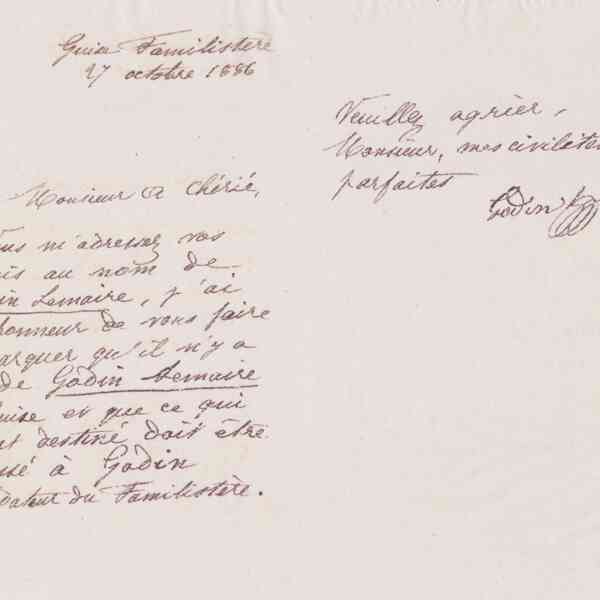 Guise Familistère
27 octobre 1886
Monsieur A Chérié,
ous m'adressez vos
is au nom de
in Lemaire, j'ai
honneur de vous faire
arquer qu'il n'y a
de Godin Lemaire
uise et que ce qui
st destiné doit être
ssé à Godin
dateur du Familistère.
Veuillez agréer,
Monsieur, mes civilités
parfaites
Godin